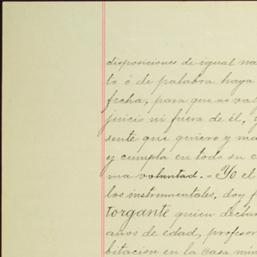 disposiciones de igual na
to ó de palabra haya
fecha, para que no val
juicio ni fuera de él, y
sente que quiero y ma
y cumpla en todo su c
ma voluntad. = Yo el
los instrumentales, doy f
torgante quien declar
años de edad, profesor
bitación en la casa núm